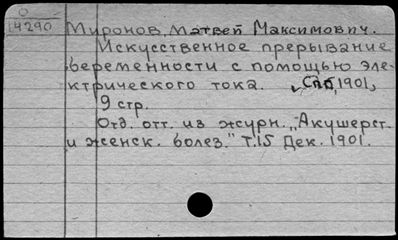 О
14290
Миронов, Матвей Максимович.
Искусственное прерывание
беременности с помощью эле-
ктрического тока. Спб, 1901,
9 стр.
Отд. отт. из журн. "Акушерст.
и женск. болез." Т.15 Дек. 1901.